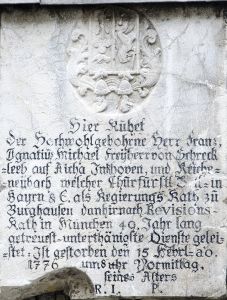 Hier Ruhet
Der Hochwolgebohrne Herr Franz,
Ignatius Michael Freÿherr von Schreck-
leeb auf Aicha Inkhoven, und Reiche-
neübach welcher Churfürstl: in
Bayrn & C. als Regierungs Rath zu
Burghausen dan hirnach Revisions-
Rath in München 49 Jahr lang
getreust-unterthänigste Dienste gelei-
stet. Ist gestorben den 15 Febrl. ao.
1776 um 8 uhr Vormittag,
seines Alters
R. I. P.